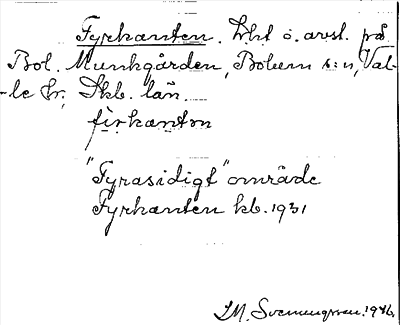 Fyrkanten. Lht o. avst. på
Bol. Munkgården, Bolum s:n, Val-
-le hr, Skb. län.
fìrkantɒn
"Fyrasidigt" område
Fyrkanten kb. 1931
I.M. Svennungsson. 1946.